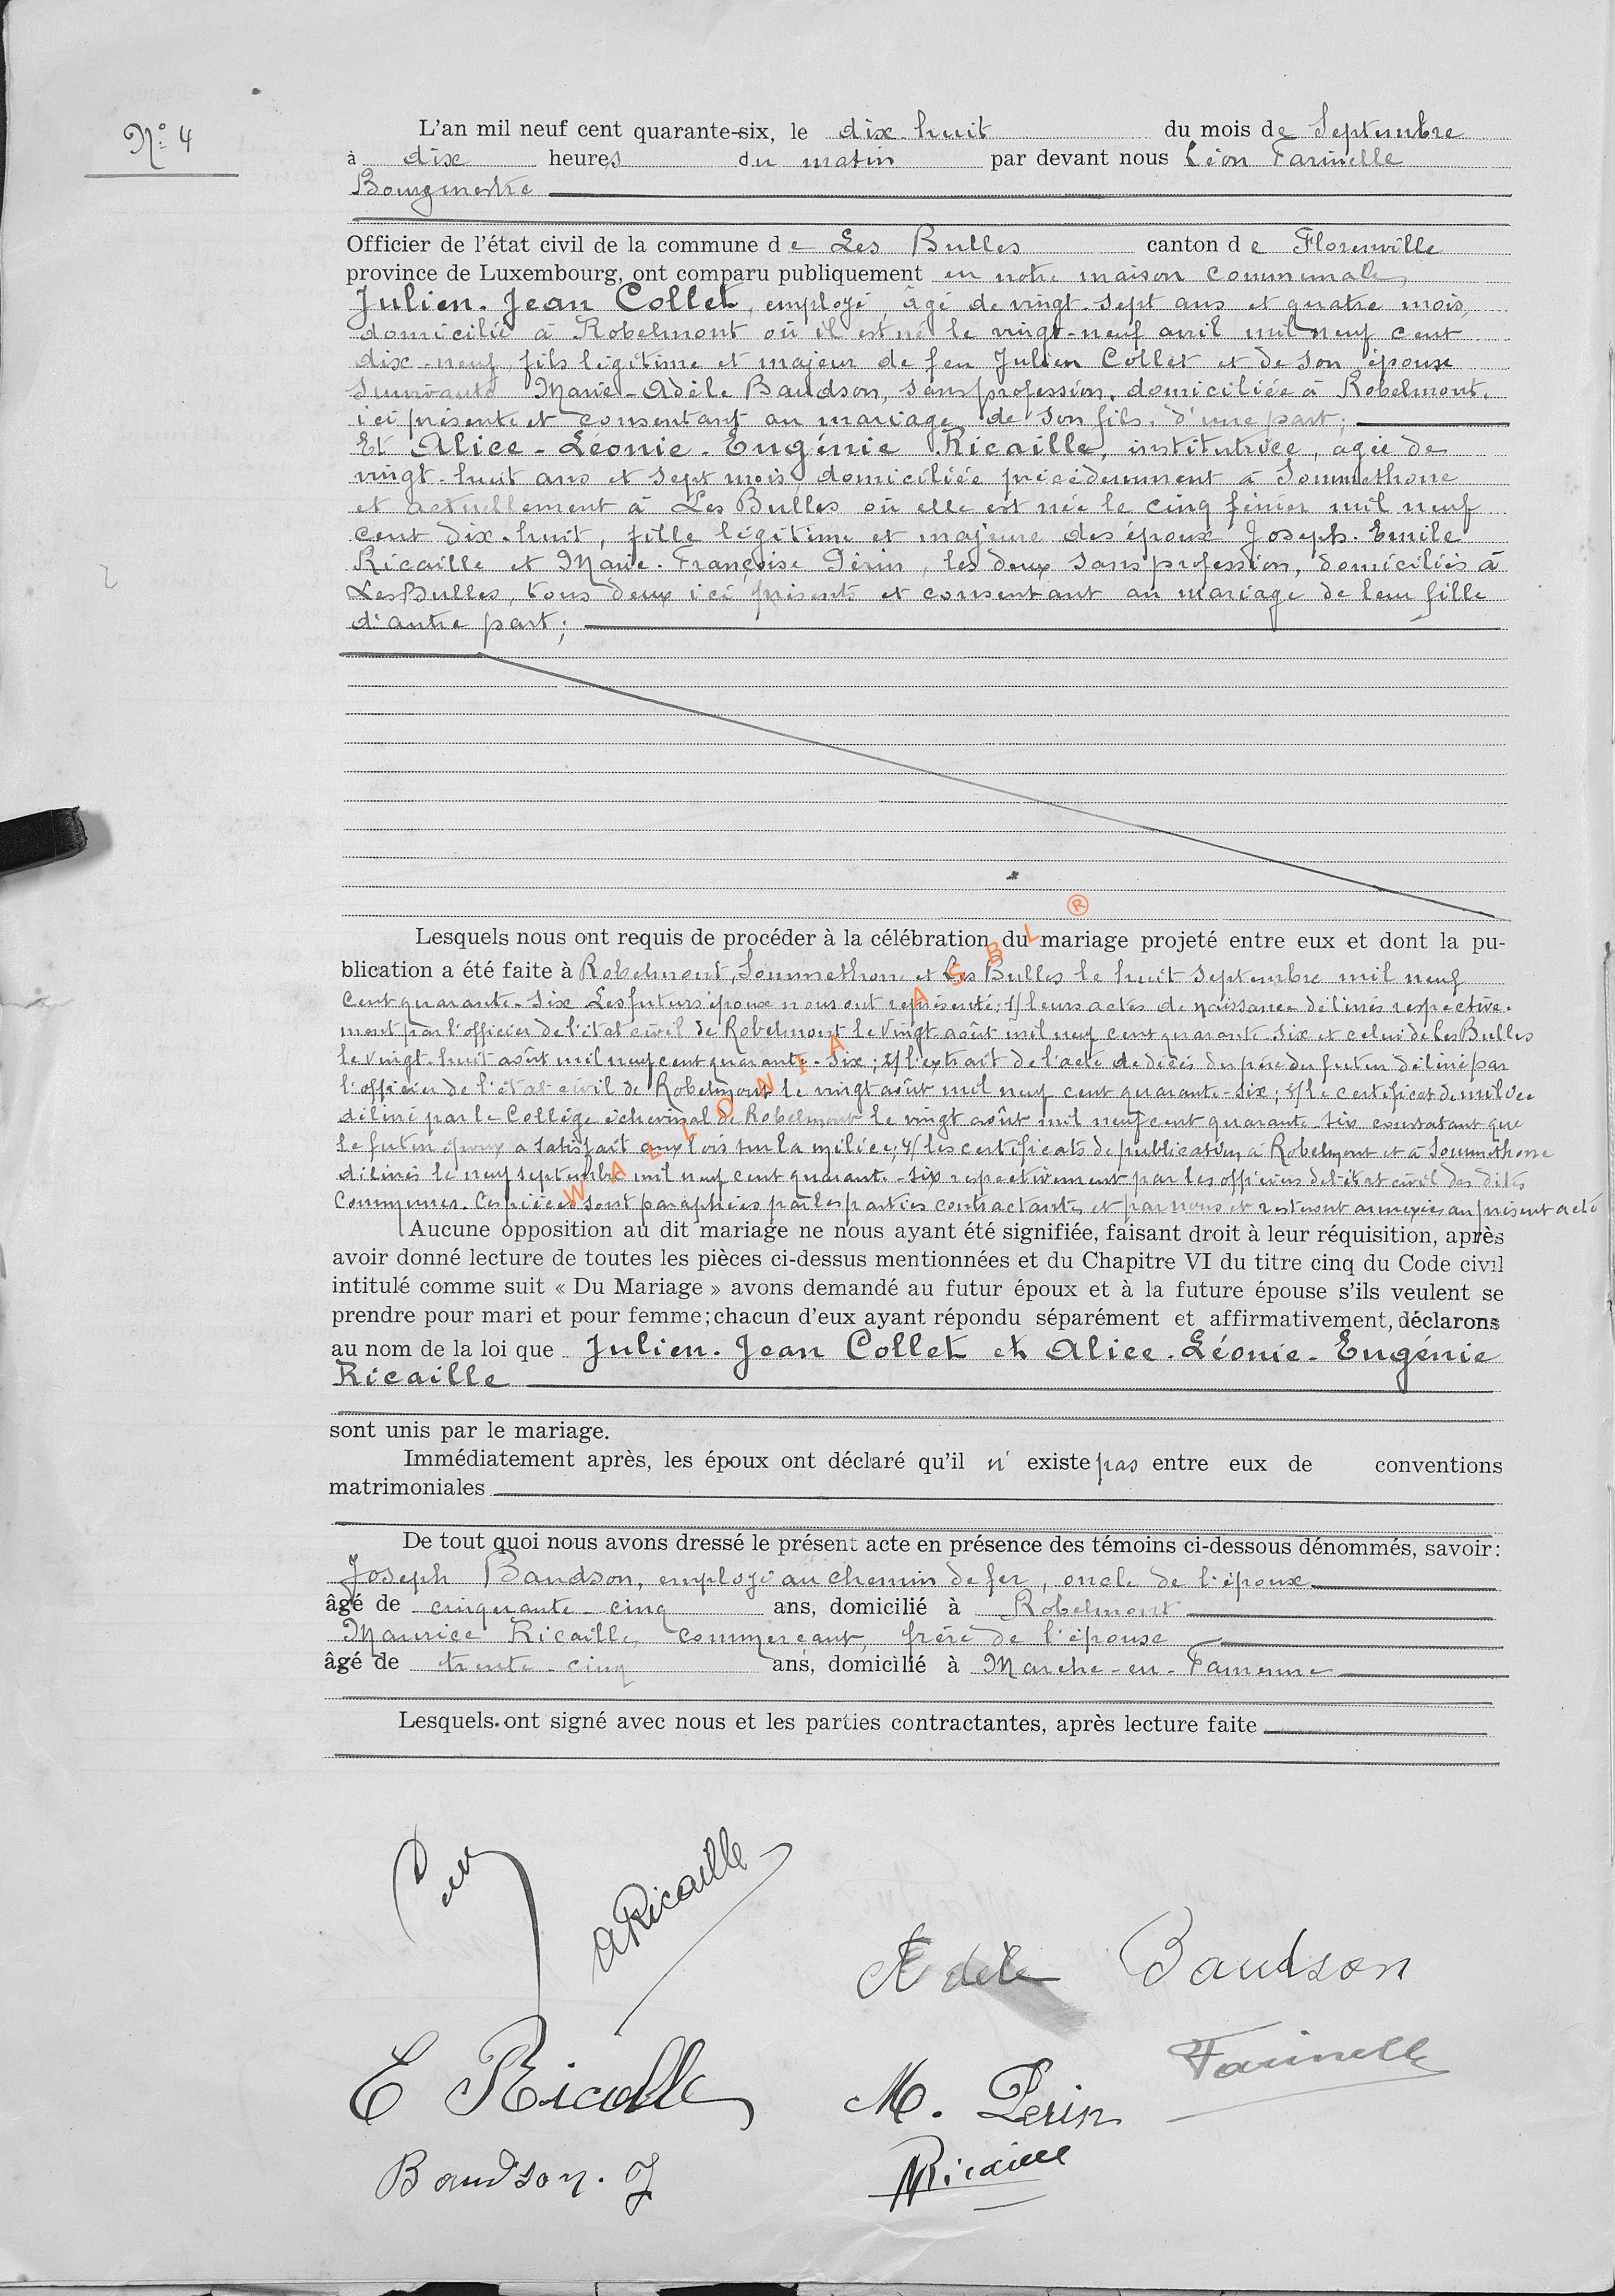 N° 4
L'an mil neuf cent quarante-six, le dix-huit du mois de Septembre
à dix heures du matin par devant nous Léon Farinelle
Bourgmestre
Officier de l'état civil de la commune de Les Bulles canton de Florenville
province de Luxembourg, ont comparu publiquement en notre maison communale,
Julien-Jean Collet, employé, âgé de vingt-sept ans et quatre mois,
domicilié à Robelmont où il est né le vingt-neuf avril mil neuf cent
dix-neuf, fils légitime et majeur de feu Julien Collet et de son épouse
survivante Marie-Adèle Baudson, sans profession, domiciliée à Robelmont,
ici présente et consentant au mariage de son fils, d'une part;
Et Alice-Léonie-Eugénie Ricaille, institutrice, agée de
vingt-huit ans et sept mois, domiciliée précédemment à Sommethonne
et actuellement à Les Bulles où elle est née le cinq février mil neuf
cent dix-huit, fille légitime et majeure des époux Joseph-Emile
Ricaille et Marie-Françoise Perin, les deux sans profession, domiciliés à
Les Bulles, tous deux ici présents et consentant au mariage de leur fille
d'autre part;
Lesquels nous ont requis de procéder à la célébration du mariage projeté entre eux et dont la pu-
blication a été faite à Robelmont, Sommethonne et Les Bulles le huit septembre mil neuf
cent quarante-six Les futurs époux nous ont représenté; 1/ leurs actes de naissance délivrés respective-
ment par l'officier de l'état civil de Robelmont le vingt août mil neuf cent quarante-six et celui de Les Bulles
le vingt-huit août mil neuf cent quarante-six; 2/ l'extrait de l'acte de décès du père du futur délivré par
l'officier de l'état civil de Robelmont le vingt août mil neuf cent quarante-six; 3/ le certificat de milice
délivré par le Collège échevinal de Robelmont le vingt août mil neuf cent quarante-six constatant que
le futur époux a satisfait aux lois sur la milice; 4/ les certificats de publication à Robelmont et à Sommethonne
délivrés le neuf septembre mil neuf cent quarante-six respectivement par les officiers de l'état civil des dites
Communes. Ces pièces sont paraphées par les parties contractantes et par nous et resteront annexées au présent acte
WALLONIA ASBL ®
Aucune opposition au dit mariage ne nous ayant été signifiée, faisant droit à leur réquisition, après
avoir donné lecture de toutes les pièces ci-dessus mentionnées et du Chapitre VI du titre cinq du Code civil
intitulé comme suit « Du Mariage » avons demandé au futur époux et à la future épouse s'ils veulent se
prendre pour mari et pour femme; chacun d'eux ayant répondu séparément et affirmativement, déclarons
au nom de la loi que Julien-Jean Collet et Alice-Léonie-Eugénie
Ricaille
sont unis par le mariage.
Immédiatement après, les époux ont déclaré qu'il n'existe pas entre eux de conventions
matrimoniales
De tout quoi nous avons dressé le présent acte en présence des témoins ci-dessous dénommés, savoir:
Joseph Baudson, employé au chemin de fer, oncle de l'époux
âgé de cinquante-cinq ans, domicilié à Robelmont
Maurice Ricaille, commerçant, frère de l'épouse
âgé de trente-cinq ans, domicilié à Marche-en-Famenne
Lesquels ont signé avec nous et les parties contractantes, après lecture faite
ARicaille
Adèle Baudson
Farinelle
E Ricaille
M. Perin
Baudson. J
MRicaille